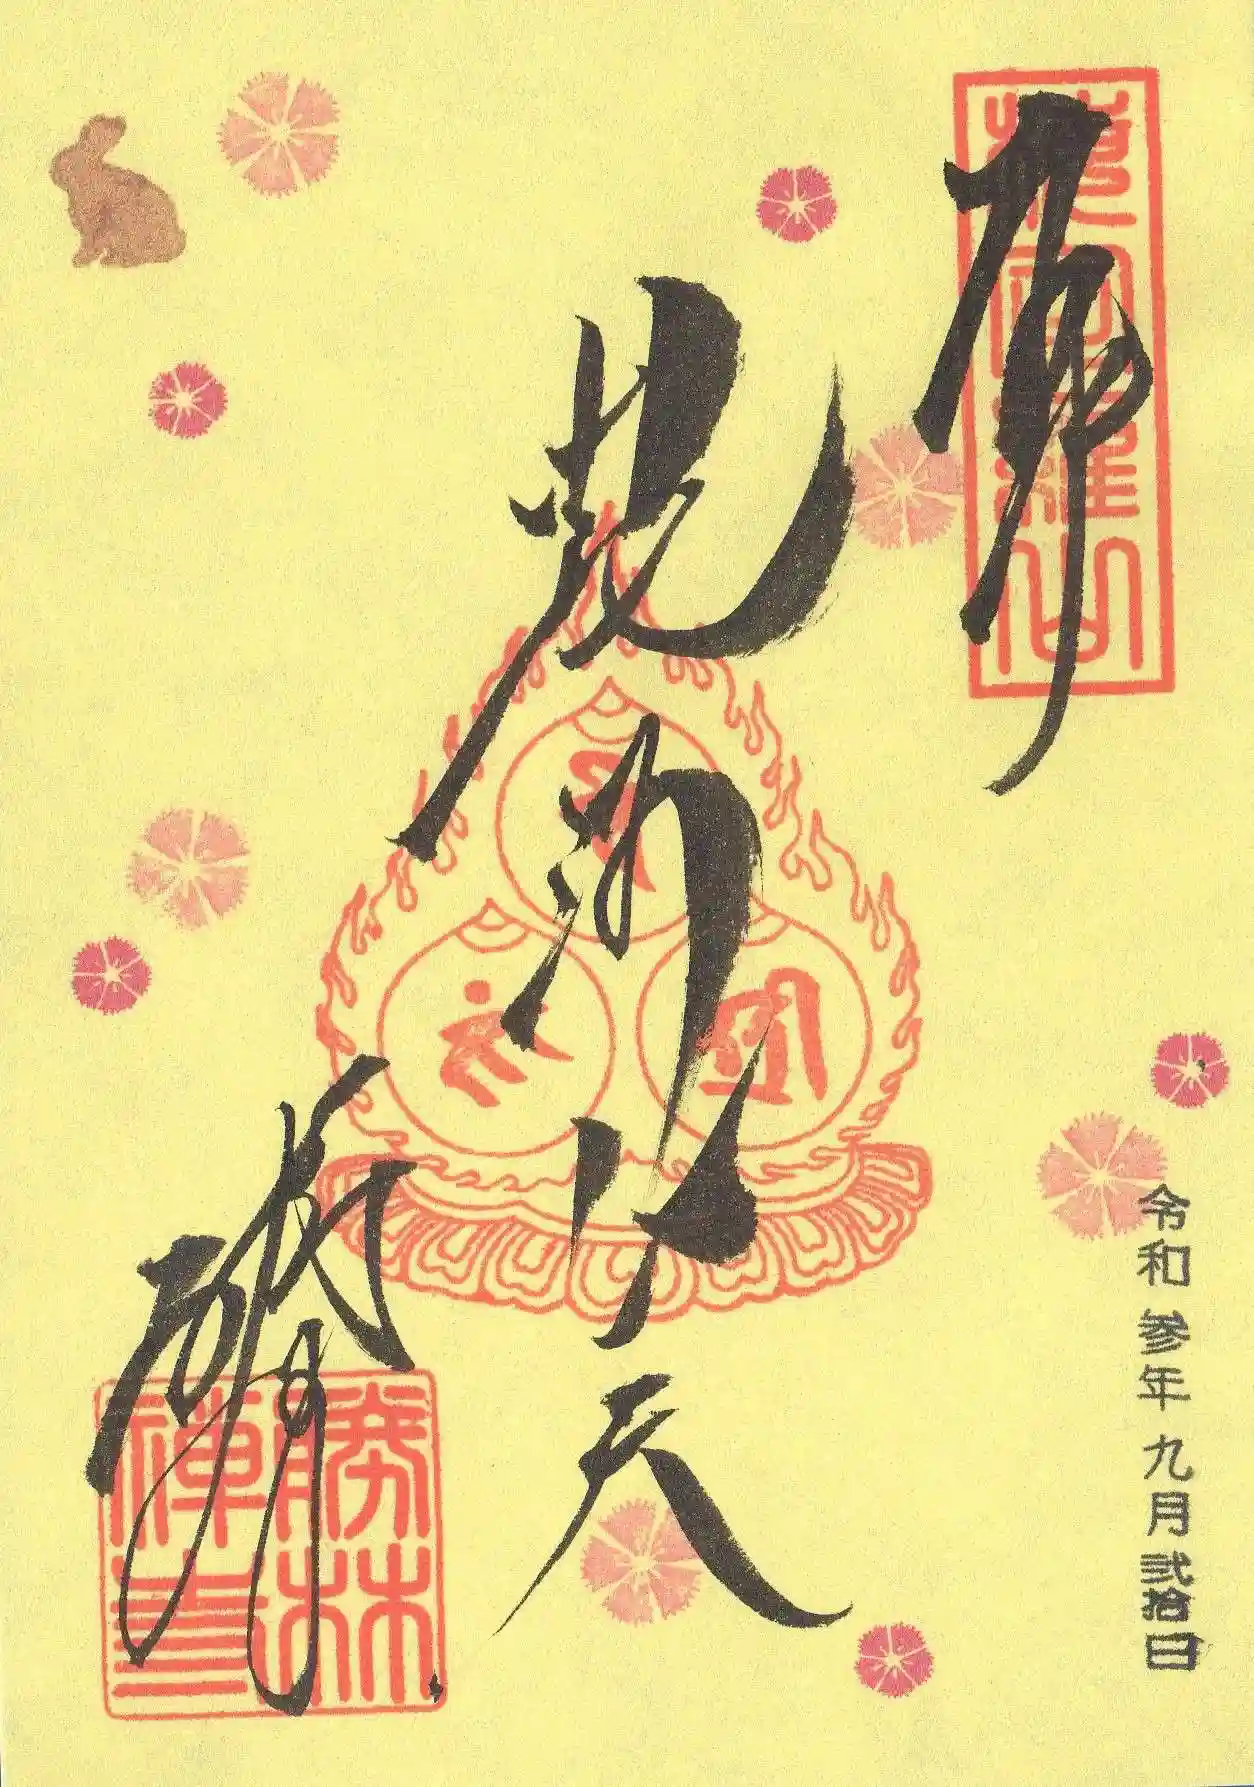 奉拝
毘沙門天
勝林寺
勝林
禅寺
令和参年九月弐拾日